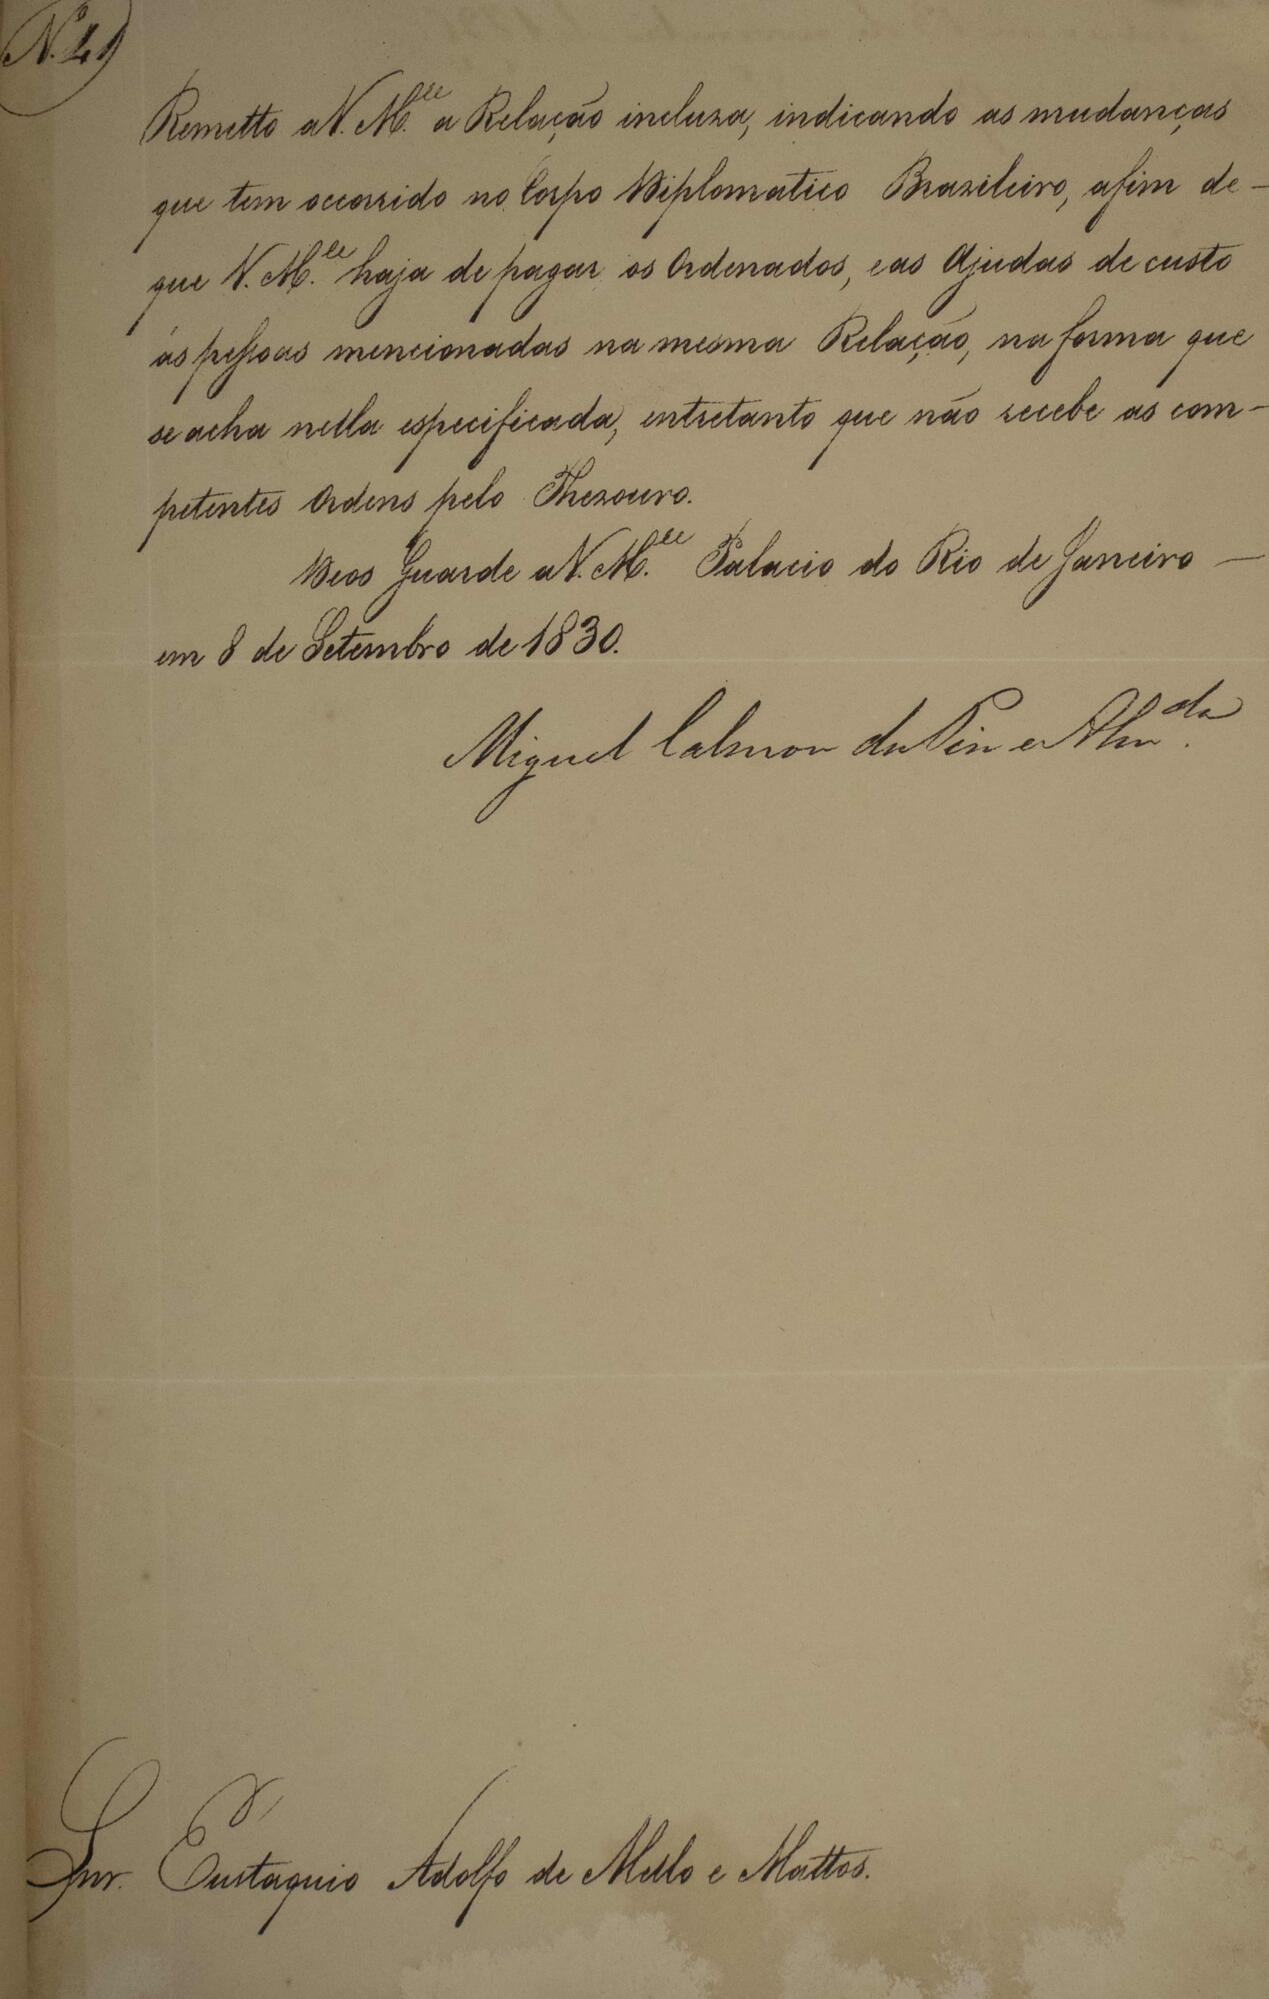 N. 41
Remetto a V. M.ce a Relação incluza, indicando as mudanças
que tem occorrido no Corpo Diplomatico Brazileiro, afim de-
que V. M.ce haja de pagar os Ordenados, e as Ajudas de custo
ás pessoas mencionadas na mesma Relação, na forma que
se acha nella especificada, entretanto que não recebe as com-
petentes Ordens pelo Thezouro.
Deos Guarde a V. M.ce Palacio do Rio de Janeiro -
em 8 de Setembro de 1830.
Miguel Calmon du Pin e Alm.da
Snr. Eustaquio Adolfo de Mello e Mattos.